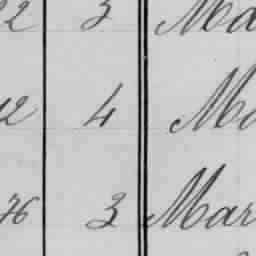 22 3 Ma
12 4 Ma
76 3 Mar